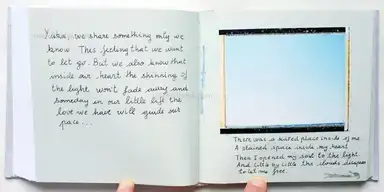 we share something only we
know. This feeling that we want
to let go. But we also know that
inside our heart the shining of
the light won't fade away and
someday in our little life the
love we have will guide our
pace...
There was a muted place inside of me
A stained space inside my heart
Then I opened my soul to the light.
And little by little the clouds disappear
to let me free.